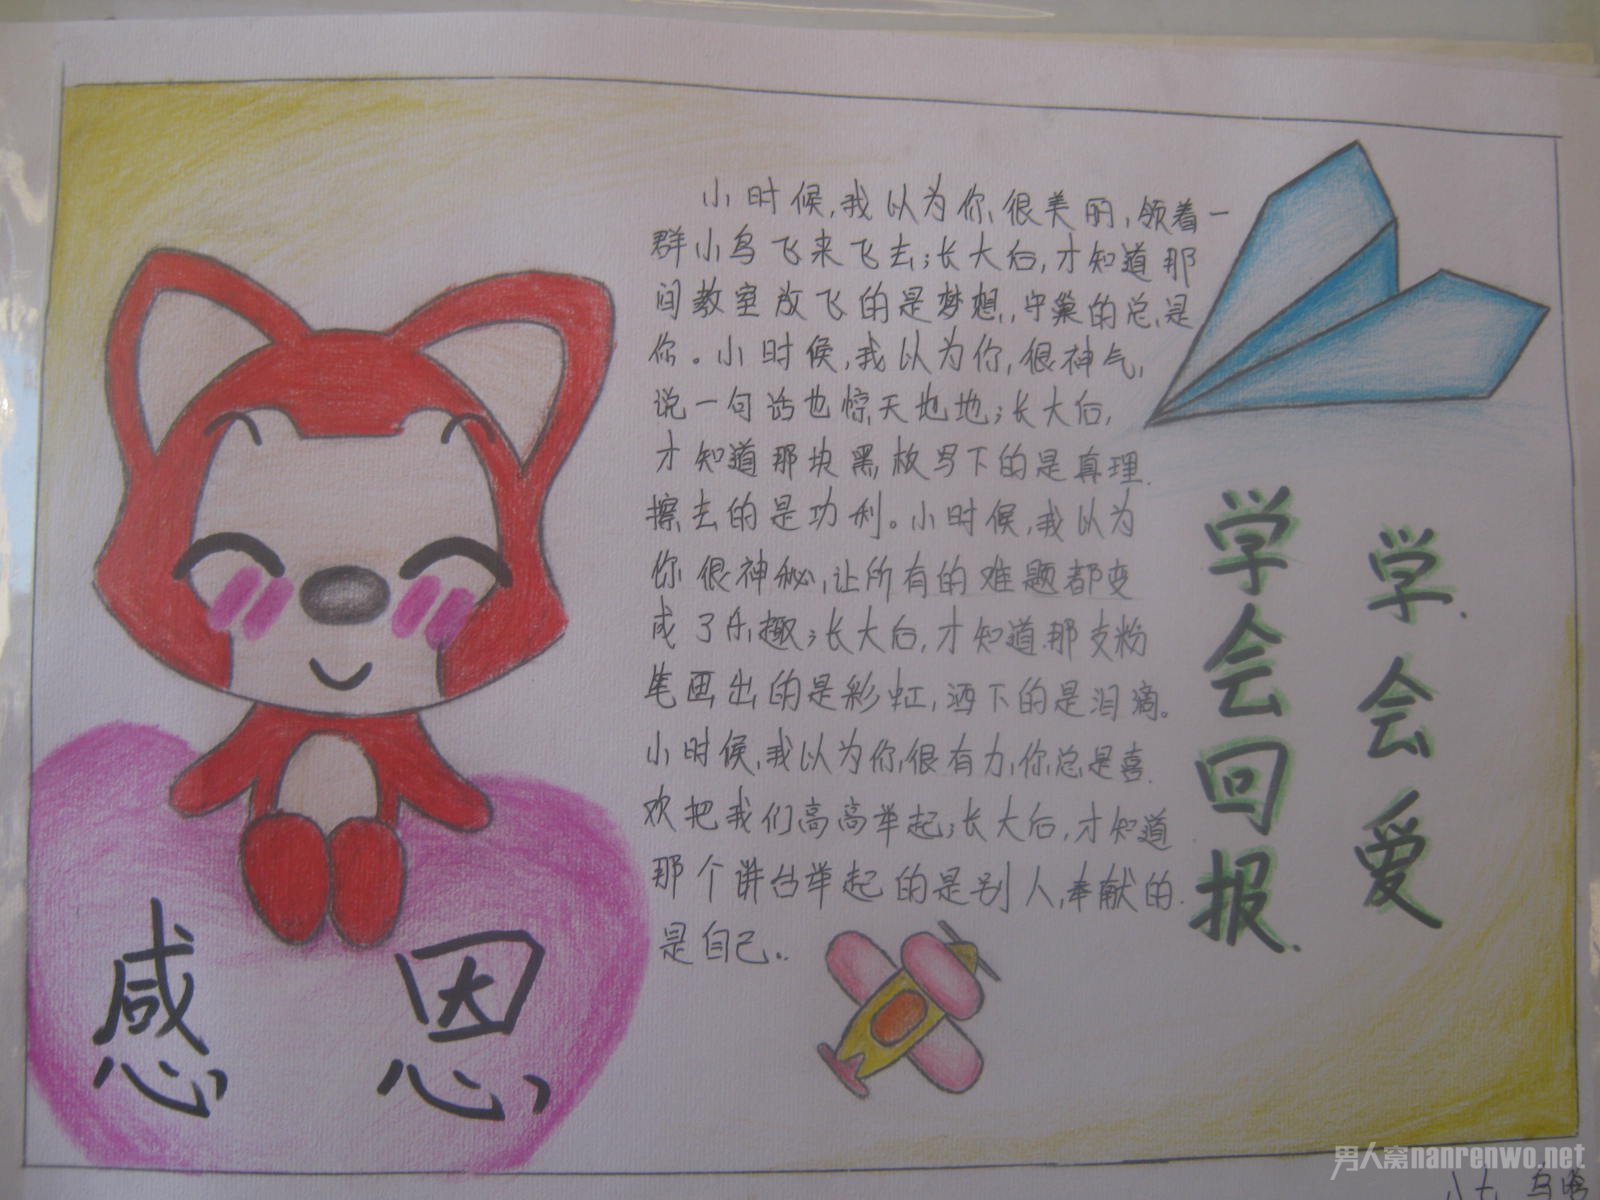 小时候,我以为你很美丽,领着一
群小鸟飞来飞去;长大后,才知道那
间教室放飞的是梦想,守巢的总是
你。小时候,我以为你很神气,
说一句话也惊天地;长大后,
才知道那块黑板写下的是真理
擦去的是功利。小时候,我以为
你很神秘,让所有的难题都变
成了乐趣;长大后,才知道那支粉
笔画出的是彩虹,洒下的是泪滴。
小时候,我以为你很有力,你总是喜
欢把我们高高举起;长大后,才知道
那个讲台举起的是别人,奉献的
是自己。
学会回报
学会爱
感恩
男人窝nanrenwo.net